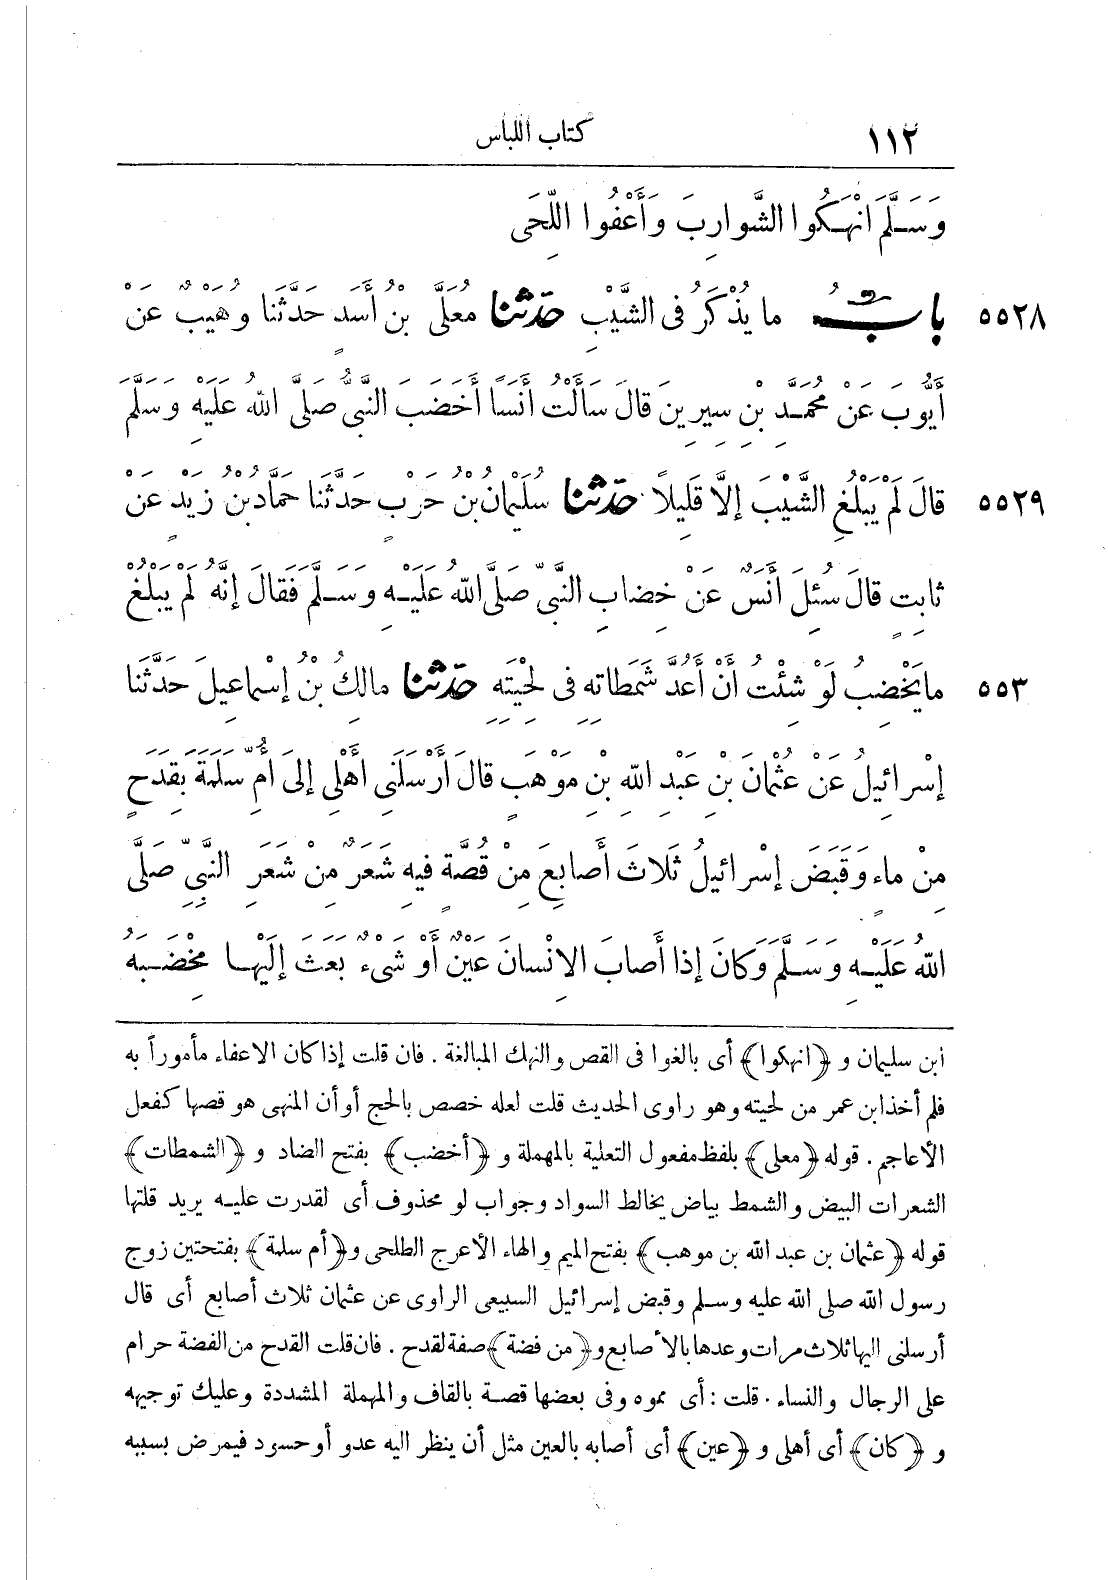 ١١٢ كتاب اللباس
وَسَلَّمَ انْهَكُوا الشَّوارِبَ وَأَعْفُوا اللِّحَى
٥٥٢٨ بابُ ما يُذْكَرُ فى الشَّيْبِ حَدَّثنا مُعَلَّى بْنُ أَسَدٍ حَدَّثَنا وُهَيْبٌ عَنْ
أَيُّوبَ عَنْ مُحَمَّدِ بْنِ سِيرِينَ قالَ سَأَلْتُ أَنَسًا أَخَضَبَ النَّبِىُّ صَلَّى اللهُ عَلَيْهِ وَسَلَّمَ
٥٥٢٩ قالَ لَمْ يَبْلُغِ الشَّيْبَ إلَّا قَلِيلًا حَدَّثنا سُلَيْمانُ بْنُ حَرْبٍ حَدَّثَنا حَمَّادُ بْنُ زَيْدٍ عَنْ
ثابِتٍ قالَ سُئِلَ أَنَسٌ عَنْ خِضابِ النَّبِىِّ صَلَّى اللهُ عَلَيْهِ وَسَلَّمَ فَقالَ إنَّهُ لَمْ يَبْلُغْ
٥٥٣ ما يَخْضِبُ لَوْ شِئْتُ أَنْ أَعُدَّ شَمَطاتِهِ فى لِحْيَتِهِ حَدَّثنا مالِكُ بْنُ إسْماعِيلَ حَدَّثَنا
إسْرائِيلُ عَنْ عُثْمانَ بْنِ عَبْدِ اللهِ بْنِ مَوْهَبٍ قالَ أَرْسَلَنِى أَهْلِى إلى أُمِّ سَلَمَةَ بِقَدَحٍ
مِنْ ماءٍ وَقَبَضَ إسْرائِيلُ ثَلاثَ أَصابِعَ مِنْ قُصَّةٍ فِيهِ شَعَرٌ مِنْ شَعَرِ النَّبِىِّ صَلَّى
اللهُ عَلَيْهِ وَسَلَّمَ وَكانَ إذا أَصابَ الإِنْسانَ عَيْنٌ أَوْ شَىْءٌ بَعَثَ إلَيْها مِخْضَبَهُ
ابن سليمان و ﴿انهكوا﴾ أى بالغوا فى القص والنهك المبالغة . فان قلت إذا كان الاعفاء مأموراً به
فلم أخذ ابن عمر من لحيته وهو راوى الحديث قلت لعله خصص بالحج أو أن المنهى هو قصها كفعل
الأعاجم . قوله ﴿معلى﴾ بلفظ مفعول التعلية بالمهملة و ﴿أخضب﴾ بفتح الضاد و ﴿الشمطات﴾
الشعرات البيض والشمط بياض يخالط السواد وجواب لو محذوف أى لقدرت عليه يريد قلتها
قوله ﴿عثمان بن عبد الله بن موهب﴾ بفتح الميم والهاء الأعرج الطلحى و﴿أم سلمة﴾ بفتحتين زوج
رسول الله صلى الله عليه وسلم وقبض إسرائيل السبيعى الراوى عن عثمان ثلاث أصابع أى قال
أرسلنى اليها ثلاث مرات وعدها بالأصابع و﴿من فضة﴾ صفة لقدح . فان قلت القدح من الفضة حرام
على الرجال والنساء . قلت : أى مموه وفى بعضها قصة بالقاف والمهملة المشددة وعليك توجيهه
و ﴿كان﴾ أى أهلى و ﴿عين﴾ أى أصابه بالعين مثل أن ينظر اليه عدو أو حسود فيمرض بسببه